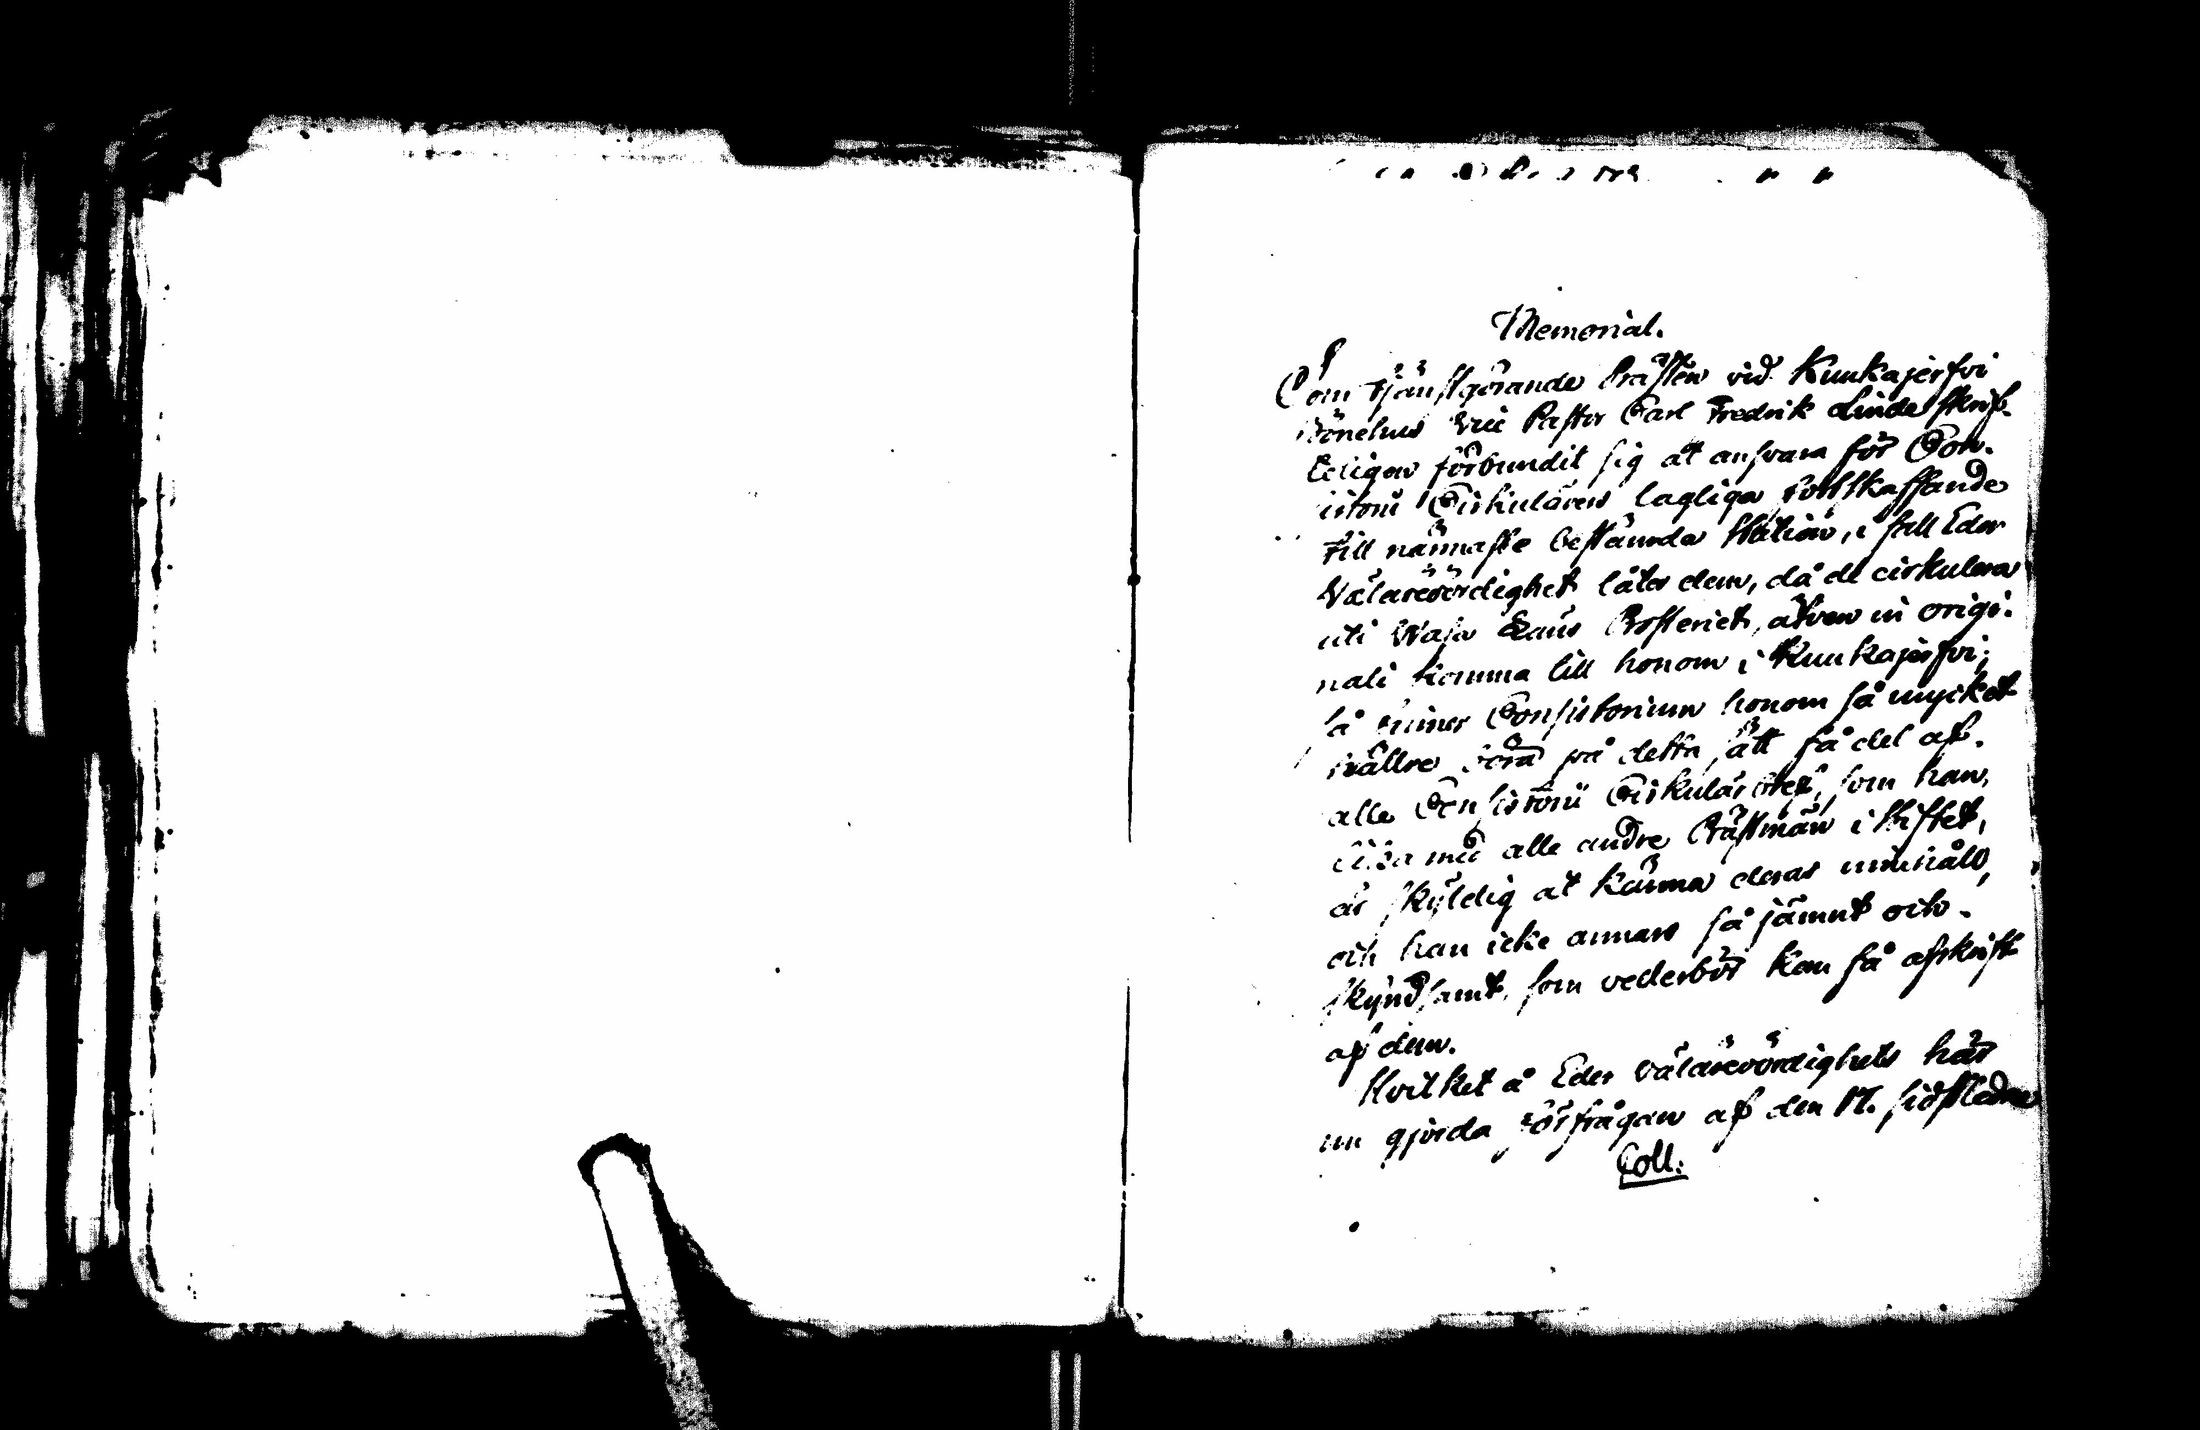 Memorial.
Som tjänstgörande Prästen vid Kuukajerfvi
Bönehus Vice Pastor Carl Fredrik Linde skrift-
teligen förbundit sig at ansvara för Con-
sistorii Cirkulärens lagliga fortskaffande
till nännaste bestämda Station, i fall Eder
Välärevördighet låter dem, då de cirkulera
uti Wasa Läns Prosteriet, äfven in origi-
nali komma till honom i Kuukajerfvi;
så finner Consistorium honom så mycket
hällre böra på detta sätt få del af
alle Consistorii Cirkulär bref, som han,
lika med alle andre Prästmän i Stiftet,
är skyldig at känna deras innehåld,
och han icke annars så jämnt och
skyndsamt, som vederbör kan få afskrift
af dem.
Hvilket å Eder välärevördighets här
um gjorda förfrågan af den 17. sidstledne
Coll: